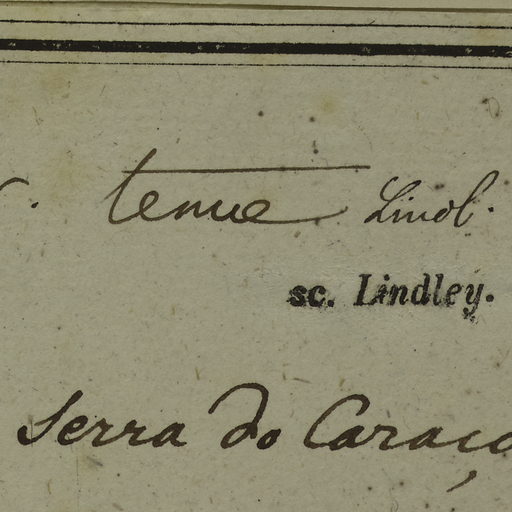 tenue Lindl.
sc. Lindley.
Serra do Caraça